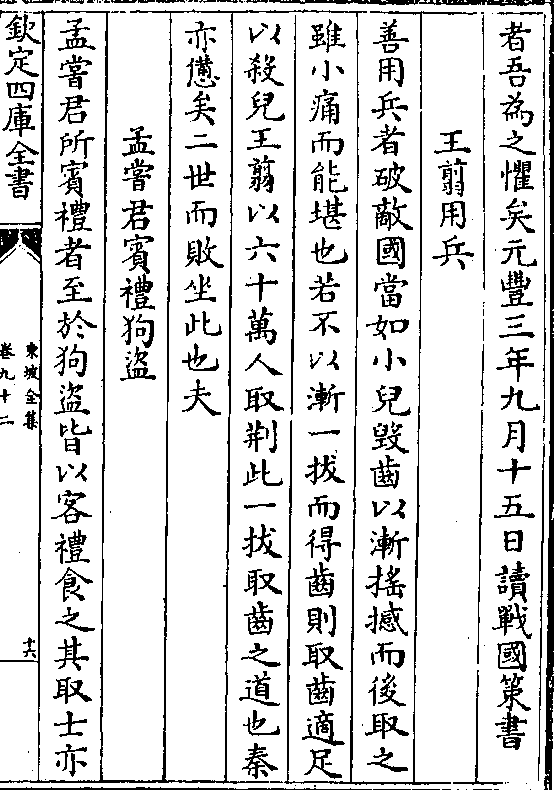 者吾為之懼矣元豐三年九月十五日讀戰國策書
王翦用兵
善用兵者破敵國當如小兒毀齒以漸搖撼而後取之
雖小痛而能堪也若不以漸一拔而得齒則取齒適足
以殺兒王翦以六十萬人取荆此一拔取齒之道也秦
亦憊矣二世而敗坐此也夫
孟嘗君賓禮狗盜
孟嘗君所賓禮者至於狗盜皆以客禮食之其取士亦
欽定四庫全書
東坡全集
卷九十二
十六